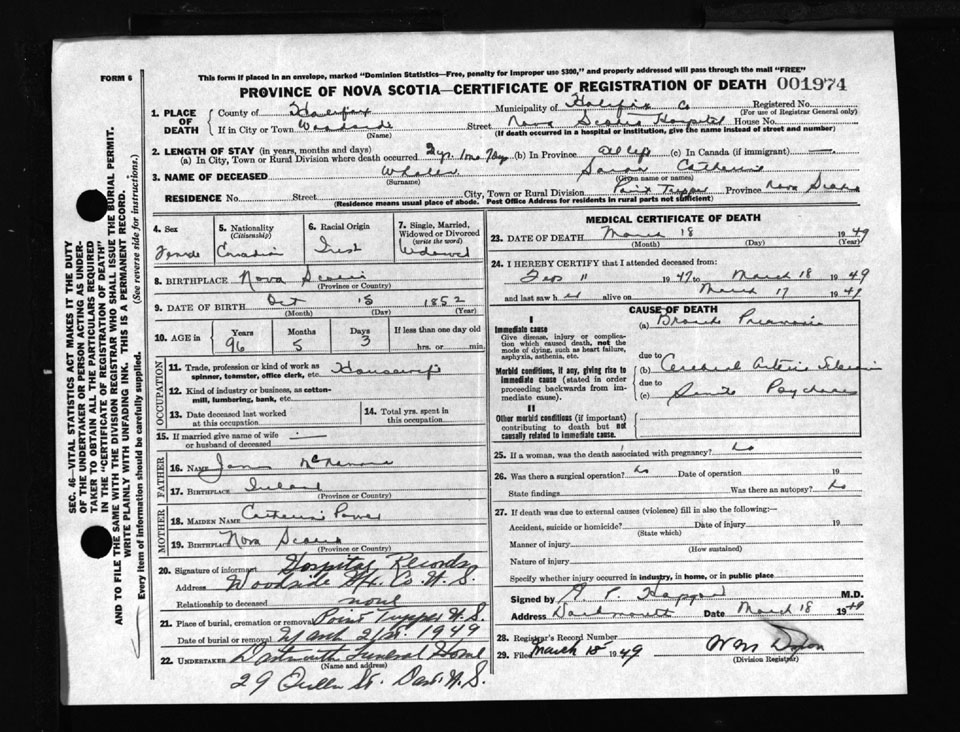 FORM 6
This form if placed in an envelope, marked "Dominion Statistics—Free, penalty for improper use $300," and properly addressed will pass through the mail "FREE"
PROVINCE OF NOVA SCOTIA—CERTIFICATE OF REGISTRATION OF DEATH 001974
SEC. 46—VITAL STATISTICS ACT MAKES IT THE DUTY
OF THE UNDERTAKER OR PERSON ACTING AS UNDER-
TAKER TO OBTAIN ALL THE PARTICULARS REQUIRED
IN THE "CERTIFICATE OF REGISTRATION OF DEATH"
AND TO FILE THE SAME WITH THE DIVISION REGISTRAR WHO SHALL ISSUE THE BURIAL PERMIT.
WRITE PLAINLY WITH UNFADING INK. THIS IS A PERMANENT RECORD.
Every item of information should be carefully supplied. (See reverse side for instructions.)
1. PLACE OF DEATH
County of Halifax Municipality of Halifax Co Registered No.
(For use of Registrar General only)
If in City or Town Woodside Street Nova Scotia Hospital House No.
(Name) (If death occurred in a hospital or institution, give the name instead of street and number)
2. LENGTH OF STAY (in years, months and days)
(a) In City, Town or Rural Division where death occurred 2 yr. 1 mo 7 dy (b) In Province all life (c) In Canada (if immigrant)
3. NAME OF DECEASED Whalen Sarah Catherine
(Surname) (Given name or names)
RESIDENCE No. Street City, Town or Rural Division Point Tupper Province Nova Scotia
(Residence means usual place of abode. Post Office Address for residents in rural parts not sufficient)
4. Sex Female
5. Nationality (Citizenship) Canadian
6. Racial Origin Irish
7. Single, Married, Widowed or Divorced (write the word) Widowed
8. BIRTHPLACE Nova Scotia
(Province or Country)
9. DATE OF BIRTH Oct 15 1852
(Month) (Day) (Year)
10. AGE in Years 96 Months 5 Days 3 If less than one day old hrs. or min.
OCCUPATION
11. Trade, profession or kind of work as spinner, teamster, office clerk, etc. Housewife
12. Kind of industry or business, as cotton-mill, lumbering, bank, etc.
13. Date deceased last worked at this occupation
14. Total yrs. spent in this occupation
15. If married give name of wife or husband of deceased
FATHER
16. NAME James McNamara
17. BIRTHPLACE Ireland
(Province or Country)
MOTHER
18. MAIDEN NAME Catherine Power
19. BIRTHPLACE Nova Scotia
(Province or Country)
20. Signature of informant Hospital Records
Address Woodside Hfx. Co. N.S.
Relationship to deceased none
21. Place of burial, cremation or removal Point Tupper N.S.
Date of burial or removal March 21st. 1949
22. UNDERTAKER Dartmouth Funeral Home
(Name and address)
29 Queen St. Dart. N.S.
MEDICAL CERTIFICATE OF DEATH
23. DATE OF DEATH March 18 1949
(Month) (Day) (Year)
24. I HEREBY CERTIFY that I attended deceased from:
Feb 11 1947 to March 18 1949
and last saw her alive on March 17 1949
CAUSE OF DEATH
I
Immediate cause
Give disease, injury or complication which caused death, not the mode of dying, such as heart failure, asphyxia, asthenia, etc.
(a) Broncho Pneumonia
due to
Morbid conditions, if any, giving rise to immediate cause (stated in order proceeding backwards from immediate cause).
(b) Cerebral Arterio Sclerosis
due to
(c) Senile Psychosis
II
Other morbid conditions (if important) contributing to death but not causally related to immediate cause.
25. If a woman, was the death associated with pregnancy? No
26. Was there a surgical operation? No Date of operation 19
State findings Was there an autopsy? No
27. If death was due to external causes (violence) fill in also the following:—
Accident, suicide or homicide? Date of injury 19
(State which)
Manner of injury
(How sustained)
Nature of injury
Specify whether injury occurred in industry, in home, or in public place
Signed by M.D.
Address Dartmouth Date March 18 1949
28. Registrar's Record Number
29. Filed March 18 1949
(Division Registrar)